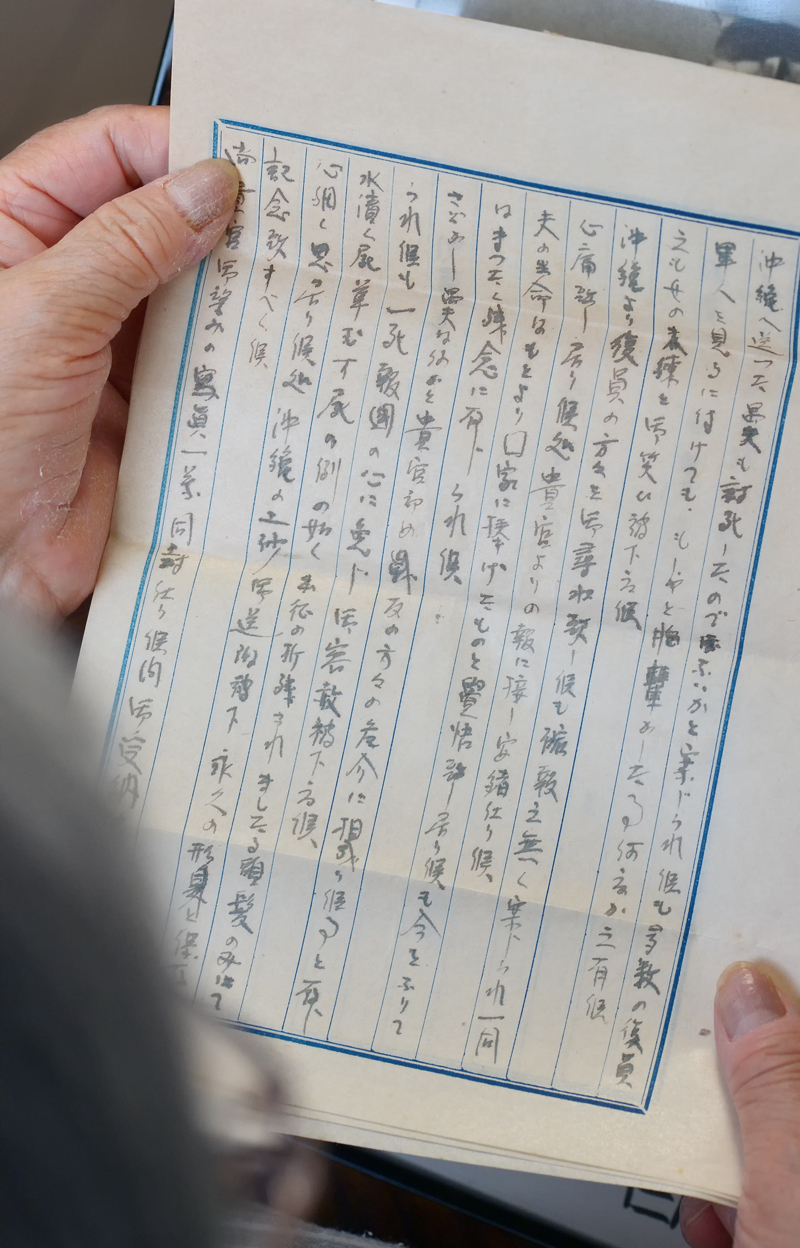 沖縄へ送った愚夫も討死したのでないかと案じられ候も多数の復員
軍人を見るに付けても、もしやと胸轟かしたる事何度か之有候
之も女の未練と御笑ひ被下度候
沖縄より復員の方々を御尋ね致し候も確報之無く案じられ一同
心痛致し居り候処貴官よりの報に接し安錯仕り候、
夫の生命はもとより国家に捧げたものと覚悟致し居り候も今をふりて
はまつたく残念に存じられ候
さぞかし愚夫は貴官初め戦友の方々の厄介に相成り候事と存じ
られ候も一死報国の心に免じ御容赦被下度候、
水漬く屍草むす屍の例の如く出征の折残されましたる頭髪のみにて
心細く思ひ居り候処沖縄の土砂御送附被下永久の形見と保存
記念致すべく候
尚貴官御望みの寫眞一葉同封仕り候間御受納